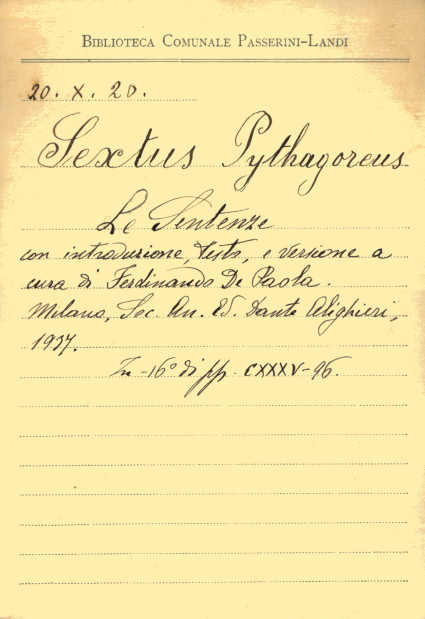 BIBLIOTECA COMUNALE PASSERINI-LANDI
20. X. 20.
Sextus Pythagoreus
Le Sentenze
con introduzione, testo, e versione a
cura di Ferdinando De Paola.
Milano, Soc. An. Ed. Dante Alighieri,
1937.
In -16° di pp. CXXXV-96.